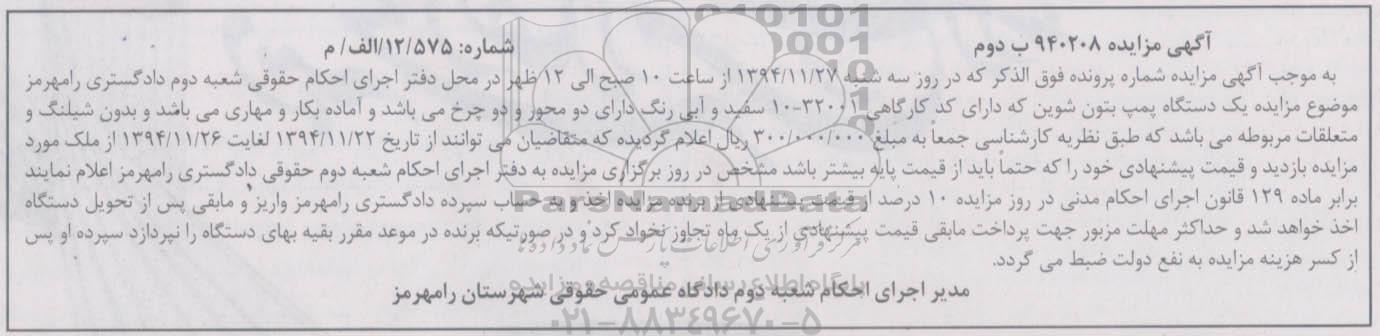 آگهی مزایده ۹۴۰۲۰۸ ب دوم
شماره: ۱۲/۵۷۵/الف/ م
به موجب آگهی مزایده شماره پرونده فوق الذکر که در روز سه شنبه ۱۳۹۴/۱۱/۲۷ از ساعت ۱۰ صبح الی ۱۲ ظهر در محل دفتر اجرای احکام حقوقی شعبه دوم دادگستری رامهرمز
موضوع مزایده یک دستگاه پمپ بتون شوین که دارای کد کارگاهی ۳۲۰۰۱-۱۰ سفید و آبی رنگ دارای دو محور و دو چرخ می باشد و آماده بکار و مهاری می باشد و بدون شیلنگ و
متعلقات مربوطه می باشد که طبق نظریه کارشناسی جمعاً به مبلغ ۳۰۰/۰۰۰/۰۰۰ ریال اعلام گردیده که متقاضیان می توانند از تاریخ ۱۳۹۴/۱۱/۲۲ لغایت ۱۳۹۴/۱۱/۲۶ از ملک مورد
مزایده بازدید و قیمت پیشنهادی خود را که حتماً باید از قیمت پایه بیشتر باشد مشخص در روز برگزاری مزایده به دفتر اجرای احکام شعبه دوم حقوقی دادگستری رامهرمز اعلام نمایند
برابر ماده ۱۲۹ قانون اجرای احکام مدنی در روز مزایده ۱۰ درصد از قیمت پیشنهادی از برنده مزایده اخذ و به حساب سپرده دادگستری رامهرمز واریز و مابقی پس از تحویل دستگاه
اخذ خواهد شد و حداکثر مهلت مزبور جهت پرداخت مابقی قیمت پیشنهادی از یک ماه تجاوز نخواد کرد و در صورتیکه برنده در موعد مقرر بقیه بهای دستگاه را نپردازد سپرده او پس
از کسر هزینه مزایده به نفع دولت ضبط می گردد.
مدیر اجرای احکام شعبه دوم دادگاه عمومی حقوقی شهرستان رامهرمز
ParsNamadData
پایگاه اطلاع رسانی مناقصه و مزایده
۰۲۱-۸۸۳۴۹۶۷۰-۵